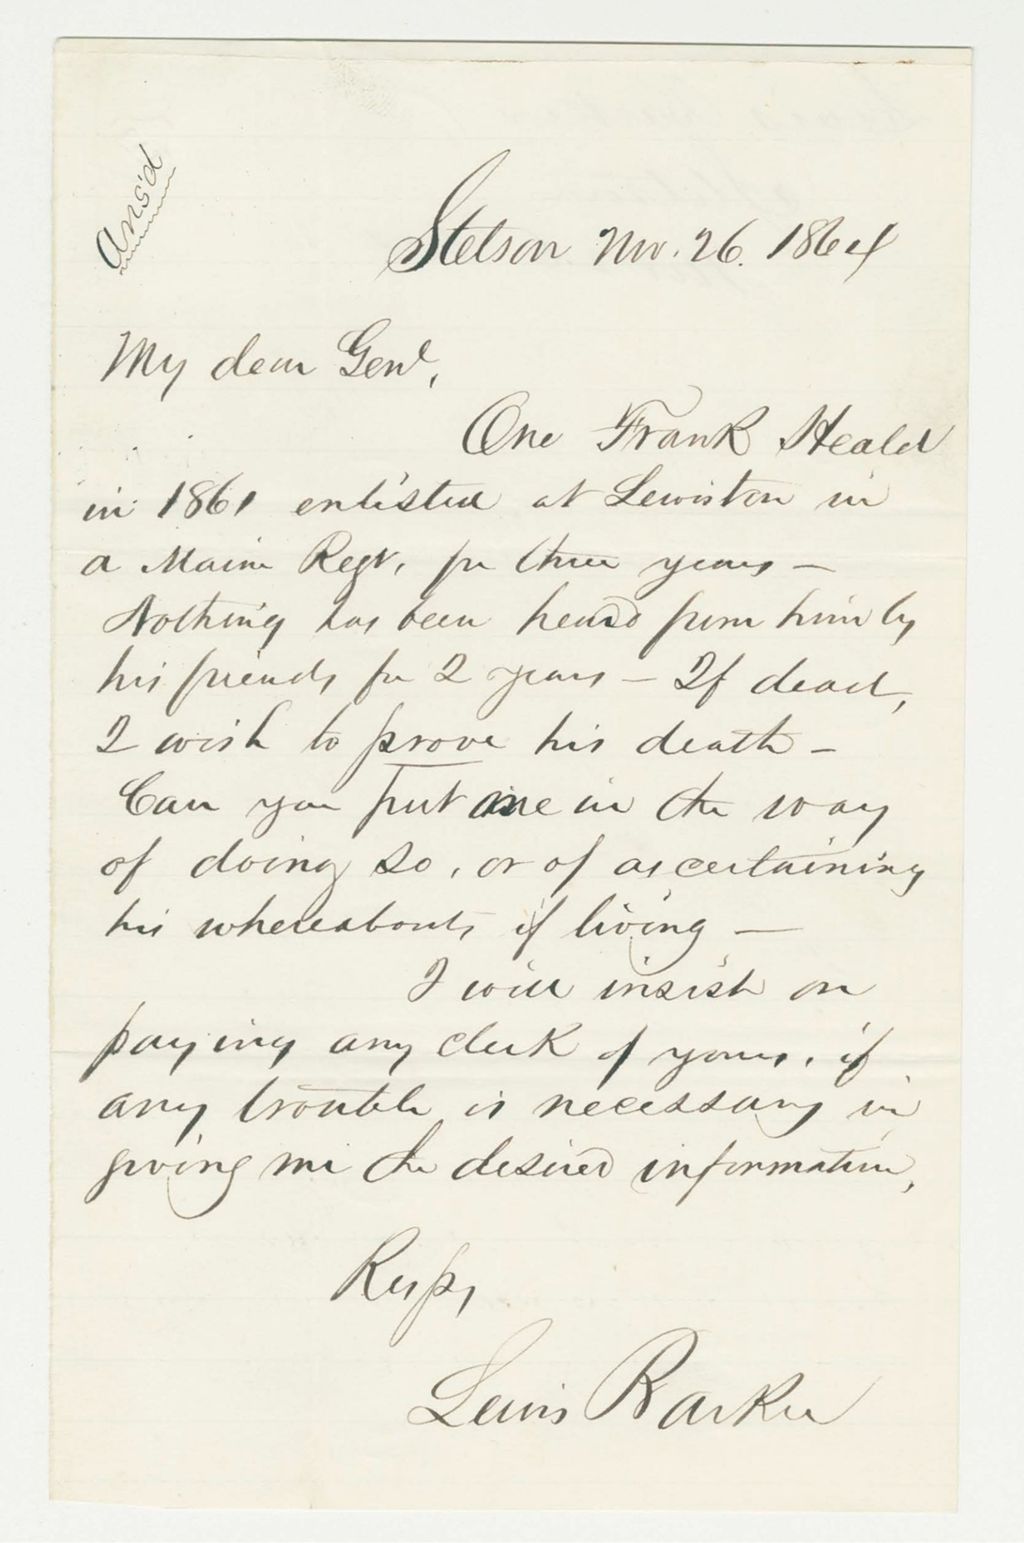 Ans'd
Stetson Nov. 26. 1864
My dear Genl,
One Frank Heald
in 1861 enlisted at Lewiston in
a Maine Regt, for three years –
Nothing has been heard from him by
his friends for 2 years – If dead,
I wish to prove his death –
Can you put me in the way
of doing so, or of ascertaining
his whereabouts if living –
I will insist on
paying any clerk of yours, if
any trouble is necessary in
giving me the desired information,
Resp,
Lewis Barker